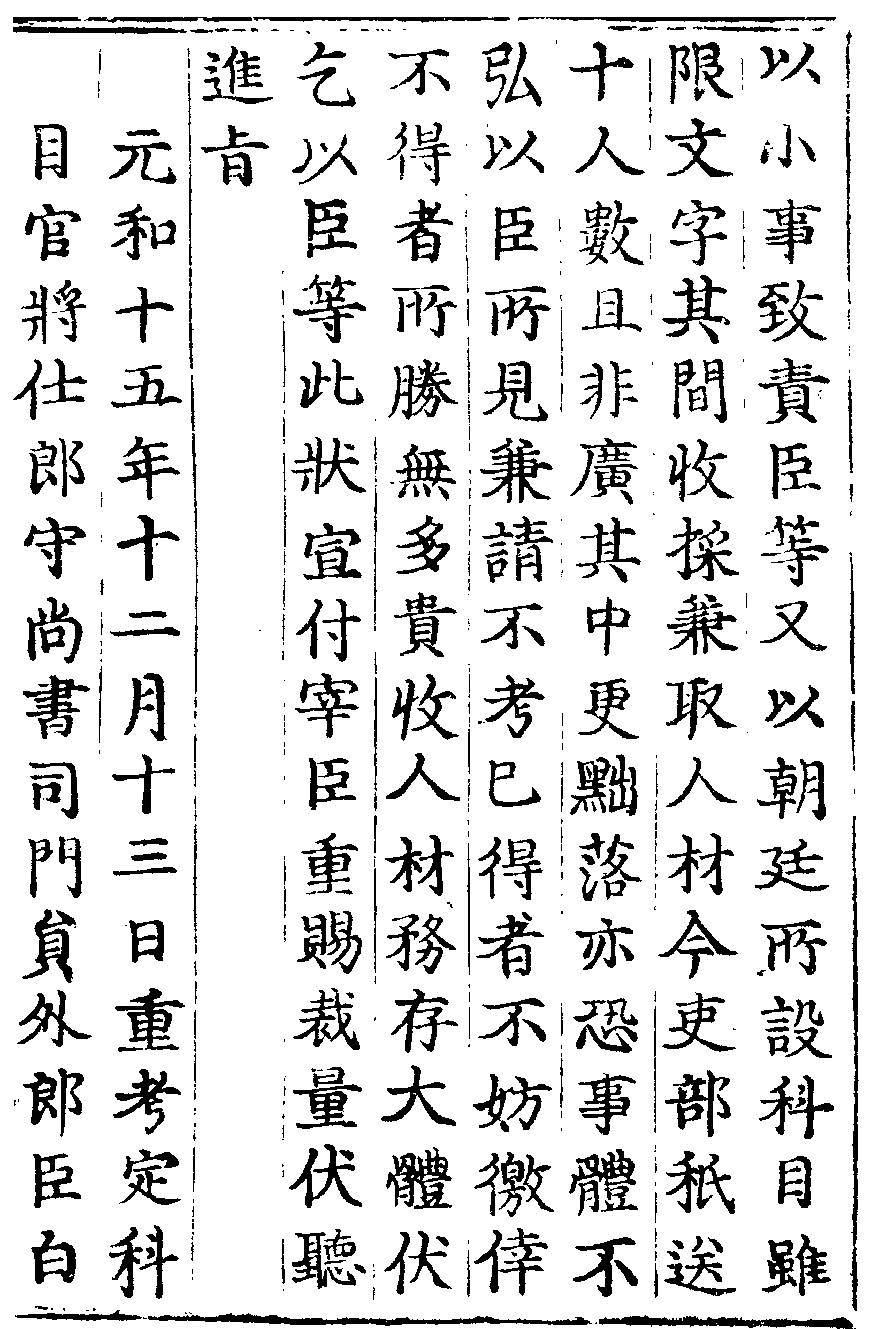 以小事致責臣等又以朝廷所設科目雖
限文字其間收採兼取人材今吏部秖送
十人數且非廣其中更黜落亦恐事體不
弘以臣所見兼請不考已得者不妨徼倖
不得者所勝無多貴收人材務存大體伏
乞以臣等此狀宣付宰臣重賜裁量伏聽
進旨
元和十五年十二月十三日重考定科
目官將仕郎守尚書司門員外郎臣白